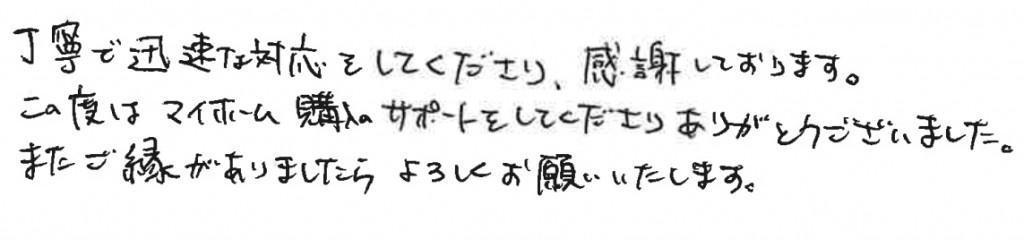 丁寧で迅速な対応をしてくださり、感謝しております。
この度はマイホーム購入のサポートをしてくださりありがとうございました。
またご縁がありましたらよろしくお願いいたします。